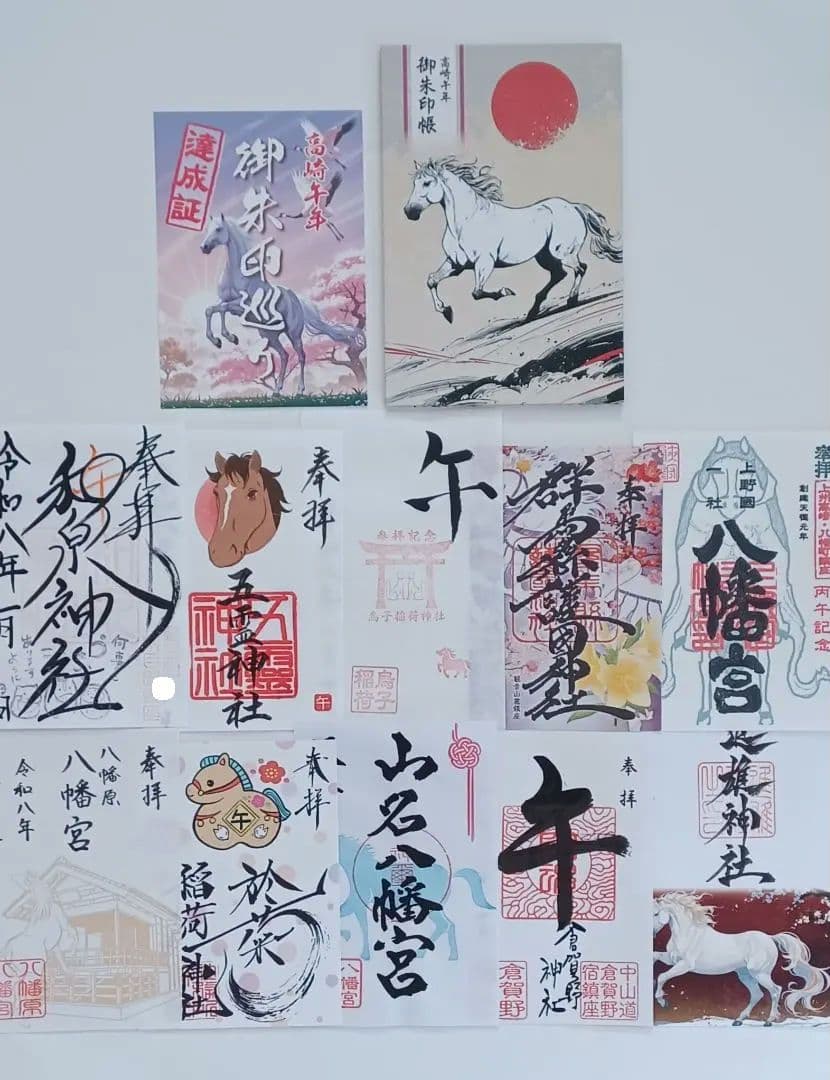 達成証
高崎午年
御朱印巡り
高崎午年
御朱印帳
奉拝
和泉神社
令和八年一月
午
奉拝
五霊神社
五霊神社
午
午
参拝記念
烏子稲荷神社
烏子稲荷
奉拝
群馬縣護国神社
観音山鎮座
上野國一社
八幡宮
創建天徳元年
丙午記念
奉拝
八幡原
八幡宮
令和八年
八幡原
奉拝
午
於菊
稲荷神社
山名八幡宮
八幡宮
奉拝
午
倉賀野神社
中山道
倉賀野
宿鎮座
倉賀野
進雄神社